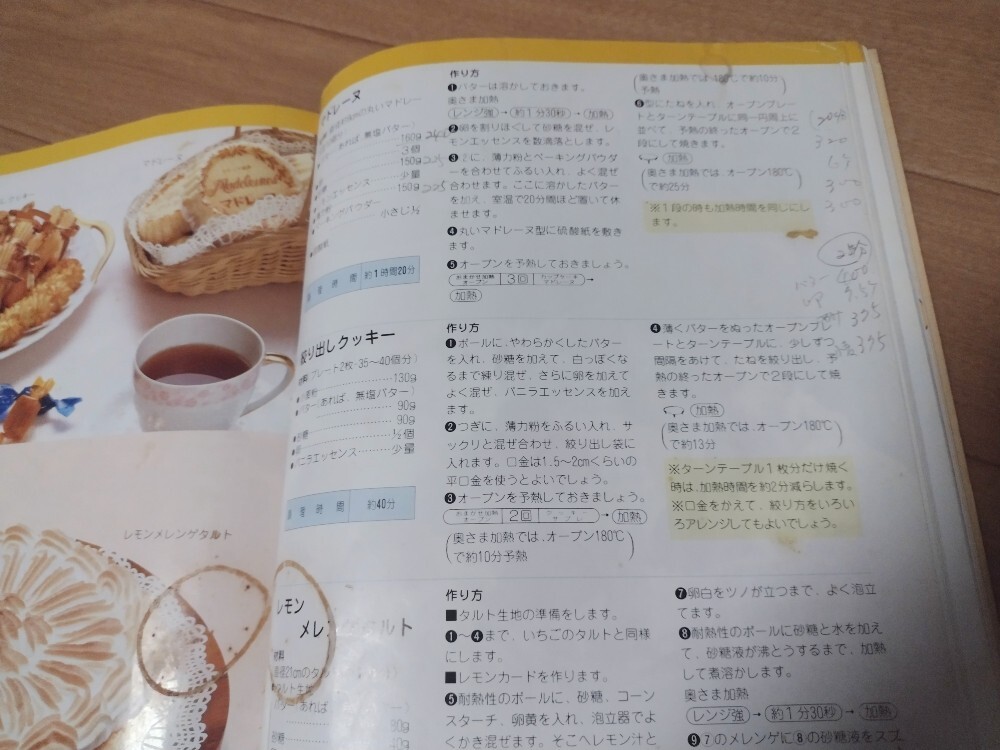 マドレーヌ
レモンメレンゲタルト
ドレーヌ
あれば、無塩バター)
160g
3個
150g
少量
エッセンス
150g
パウダー
小さじ½
時間 約1時間20分
作り方
❶バターは溶かしておきます。
奥さま加熱
レンジ強→約1分30秒→加熱
❷卵を割りほぐして砂糖を混ぜ、レ
モンエッセンスを数滴落とします。
❸2に、薄力粉とベーキングパウダ
ーを合わせてふるい入れ、よく混ぜ
合わせます。ここに溶かしたバター
を加え、室温で20分間ほど置いて休
ませます。
❹丸いマドレーヌ型に硫酸紙を敷き
ます。
❺オーブンを予熱しておきましょう。
おまかせ加熱
オーブン 3回 カップケーキ
マドレーヌ→
加熱
(奥さま加熱では、180℃で約10分
予熱)
❻型にたねを入れ、オーブンプレー
トとターンテーブルに同一円周上に
並べて、予熱の終ったオーブンで2
段にして焼きます。
加熱
(奥さま加熱では、オーブン180℃
で約25分)
※1段の時も加熱時間を同じにし
ます。
320
300
300
400
375
375
絞り出しクッキー
プレート2枚・35〜40個分)
130g
バター(あれば、無塩バター)
90g
90g
½個
バニラエッセンス……少量
時間 約40分
作り方
❶ボールに、やわらかくしたバター
を入れ、砂糖を加えて、白っぽくな
るまで練り混ぜ、さらに卵を加えて
よく混ぜ、バニラエッセンスを加え
ます。
❷つぎに、薄力粉をふるい入れ、サ
ックリと混ぜ合わせ、絞り出し袋に
入れます。口金は1.5〜2cmくらいの
平口金を使うとよいでしょう。
❸オーブンを予熱しておきましょう。
おまかせ加熱
オーブン 2回 クッキー
サブレ→加熱
(奥さま加熱では、オーブン180℃
で約10分予熱)
❹薄くバターをぬったオーブンプレ
ートとターンテーブルに、少しずつ
間隔をあけて、たねを絞り出し、予
熱の終ったオーブンで2段にして焼
きます。
加熱
(奥さま加熱では、オーブン180℃
で約13分)
※ターンテーブル1枚分だけ焼く
時は、加熱時間を約2分減らします。
※口金をかえて、絞り方をいろい
ろアレンジしてもよいでしょう。
レモン
メレンゲタルト
材料
直径21cmのタル
タルト生地
80g
砂糖
作り方
■タルト生地の準備をします。
❶〜❹まで、いちごのタルトと同様
にします。
■レモンカードを作ります。
❺耐熱性のボールに、砂糖、コーン
スターチ、卵黄を入れ、泡立器でよ
くかき混ぜます。そこへレモン汁と
❼卵白をツノが立つまで、よく泡立
てます。
❽耐熱性のボールに砂糖と水を加え
て、砂糖液が沸とうするまで、加熱
して煮溶かします。
奥さま加熱
レンジ強→約1分30秒→加熱
❾❼のメレンゲに❽の砂糖液をスプ